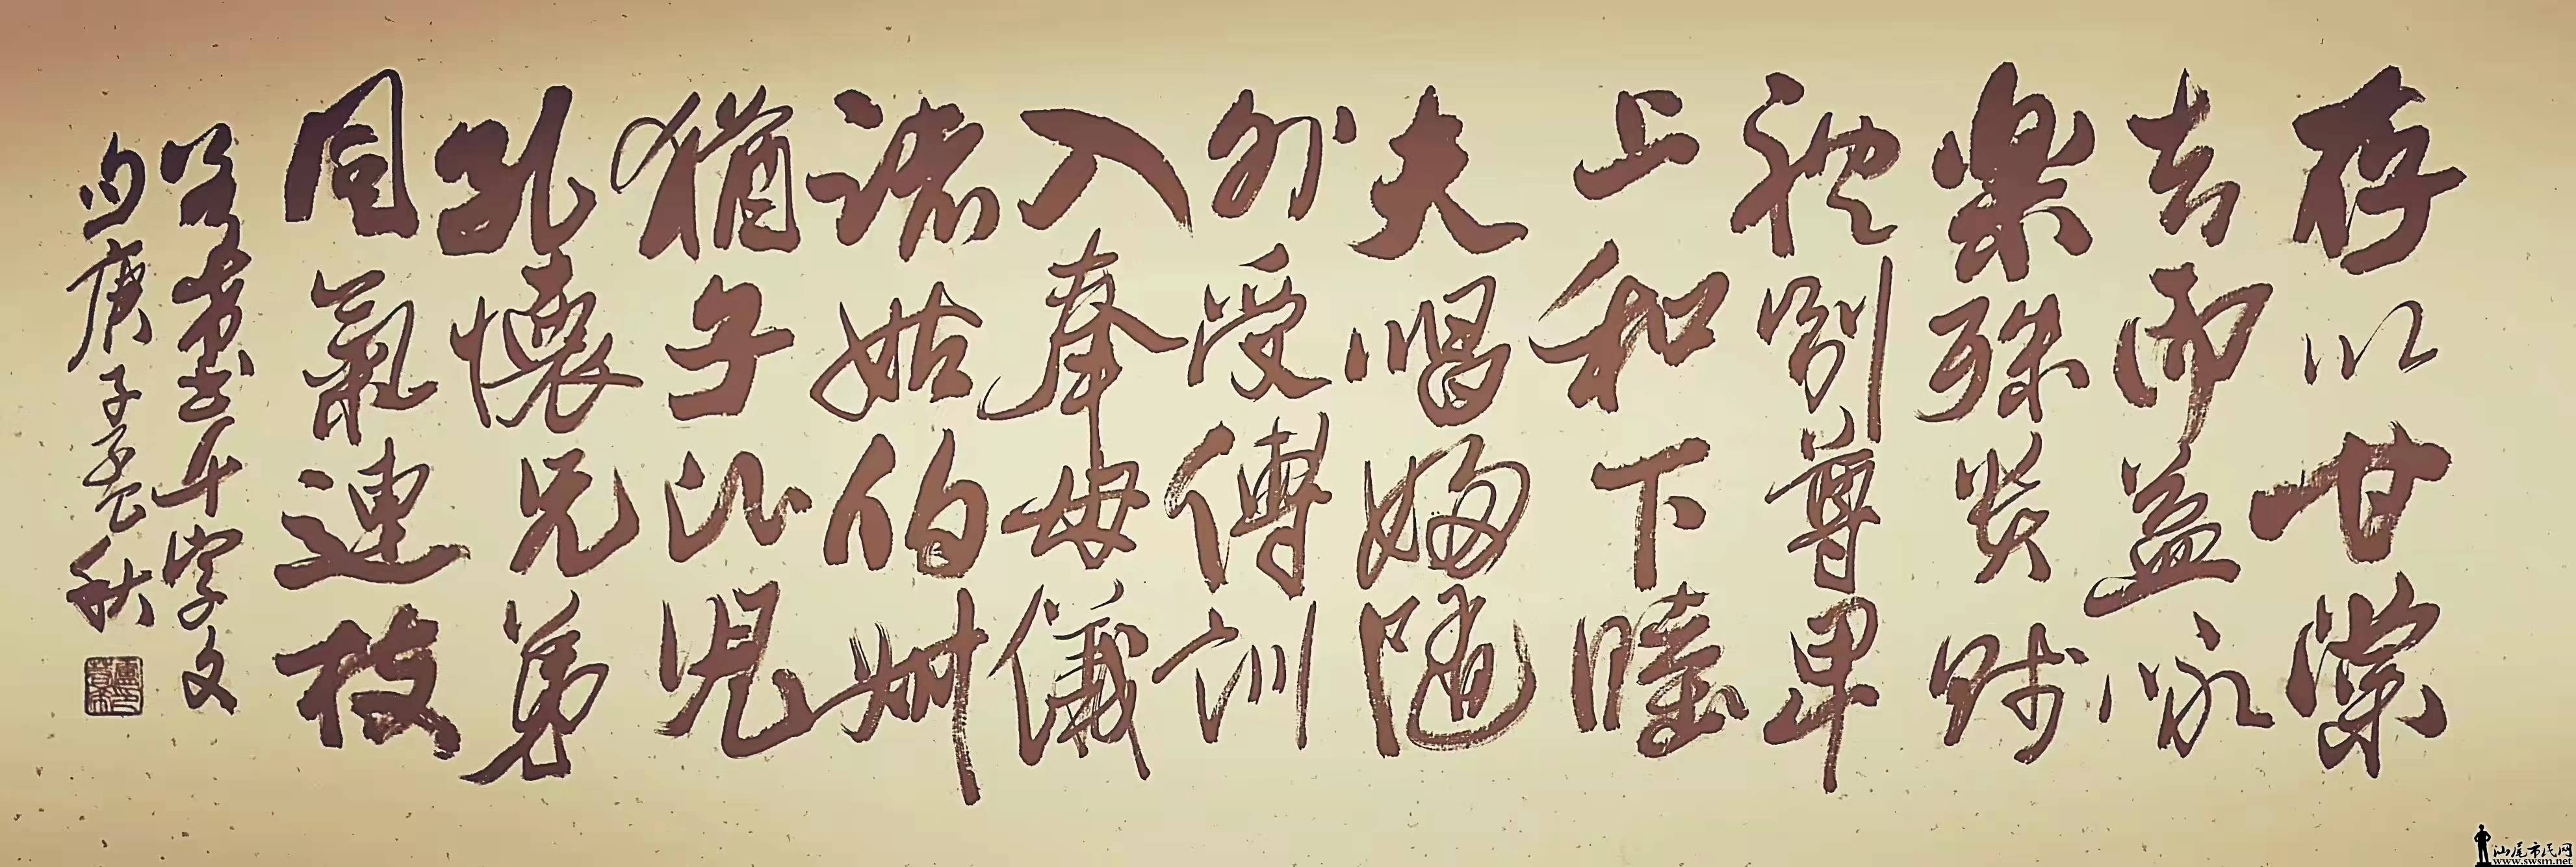 存以甘棠
去而益咏
樂殊贵贱
禮别尊卑
上和下睦
夫唱婦随
外受傅訓
入奉母儀
诸姑伯叔
猶子比兒
孔懷兄弟
同氣連枝
书千字文
句庚子孟秋
汕尾市民网
www.swsm.net